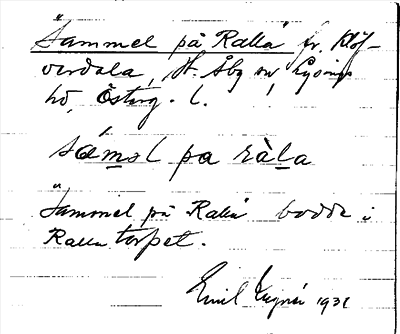 "Sammel på Ralla" fr. Klöf-
verdala, St. Åby sn, Lysings
hd, Östmg. l.
sáməl pa ràla
"Sammel på Ralla" bodde i
Ralla torpet.
Emil 1931